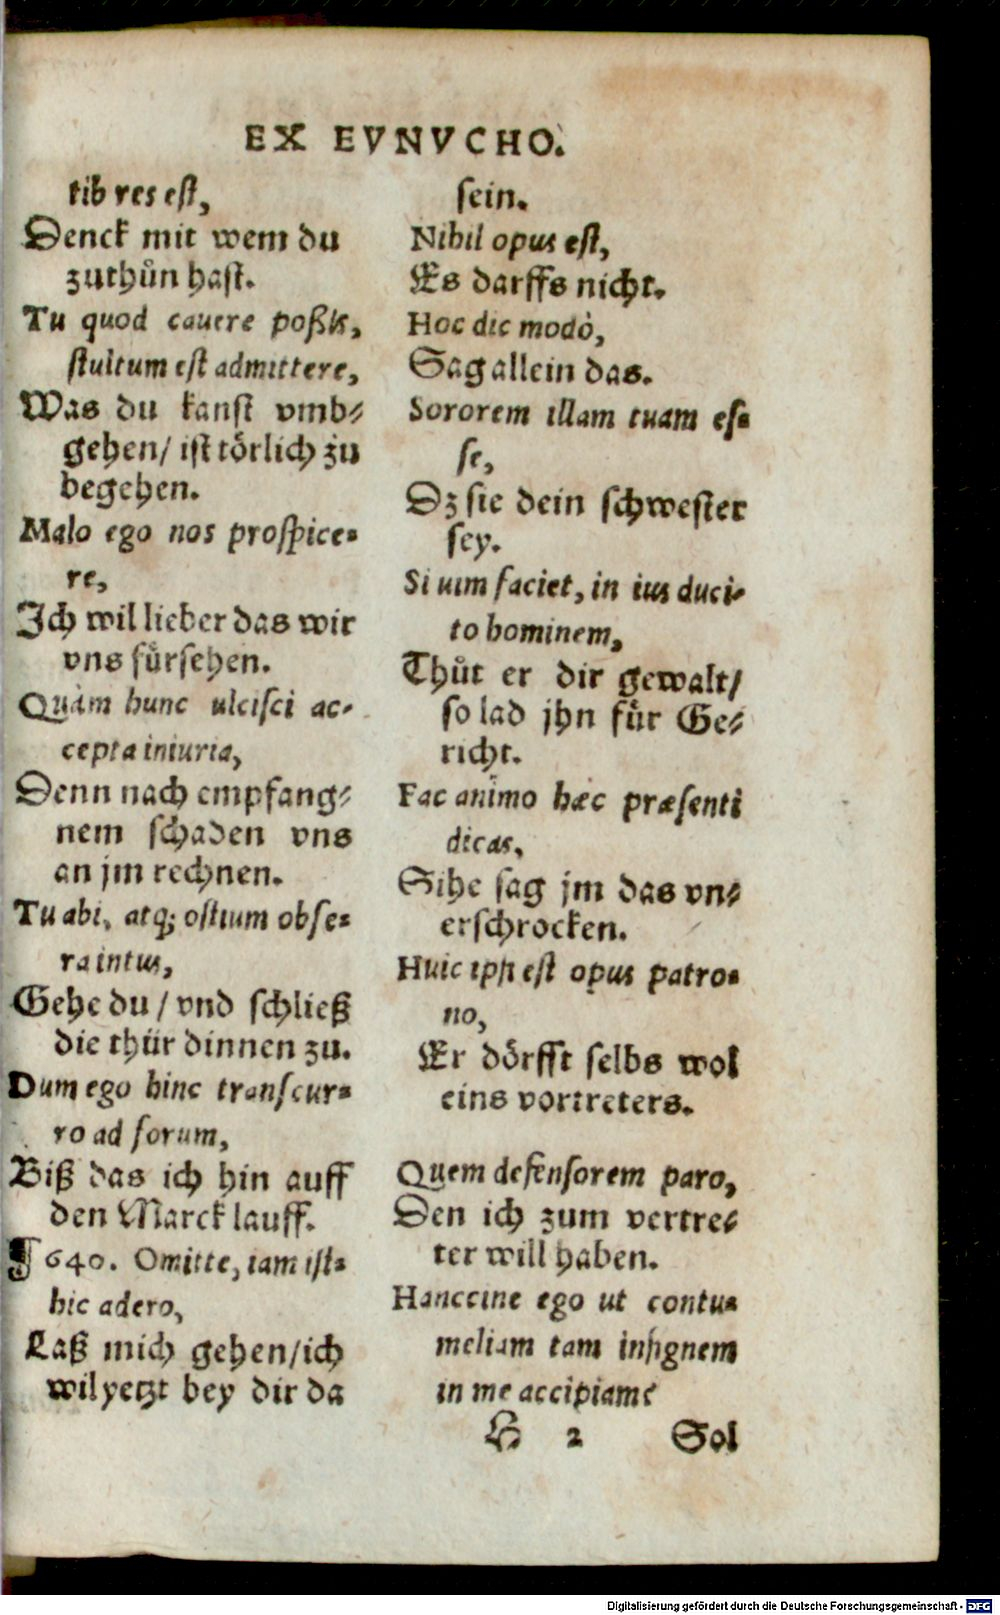 EX EVNVCHO.
tib res est,
Denck mit wem du
zuthůn hast.
Tu quod cauere poßis,
stultum est admittere,
Was du kanst vmb⸗
gehen/ ist törlich zu
begehen.
Malo ego nos prospice⸗
re,
Ich wil lieber das wir
vns fürsehen.
Quàm hunc ulcisci ac⸗
cepta iniuria,
Denn nach empfang⸗
nem schaden vns
an jm rechnen.
Tu abi, atq; ostium obse⸗
ra intus,
Gehe du / vnd schließ
die thür dinnen zu.
Dum ego hinc transcur⸗
ro ad forum,
Biß das ich hin auff
den Marck lauff.
¶ 640. Omitte, iam ist⸗
hic adero,
Laß mich gehen/ich
wil yetzt bey dir da
sein.
Nihil opus est,
Es darffs nicht.
Hoc dic modò,
Sag allein das.
Sororem illam tuam es⸗
se,
Dz sie dein schwester
sey.
Si uim faciet, in ius duci⸗
to hominem,
Thůt er dir gewalt/
so lad jhn für Ge⸗
richt.
Fac animo hæc præsenti
dicas,
Sihe sag jm das vn⸗
erschrocken.
Huic ipsi est opus patro⸗
no,
Er dörfft selbs wol
eins vortreters.
Quem defensorem paro,
Den ich zum vertre⸗
ter will haben.
Hanccine ego ut contu⸗
meliam tam insignem
in me accipiam?
H 2 Sol
Digitalisierung gefördert durch die Deutsche Forschungsgemeinschaft - DFG